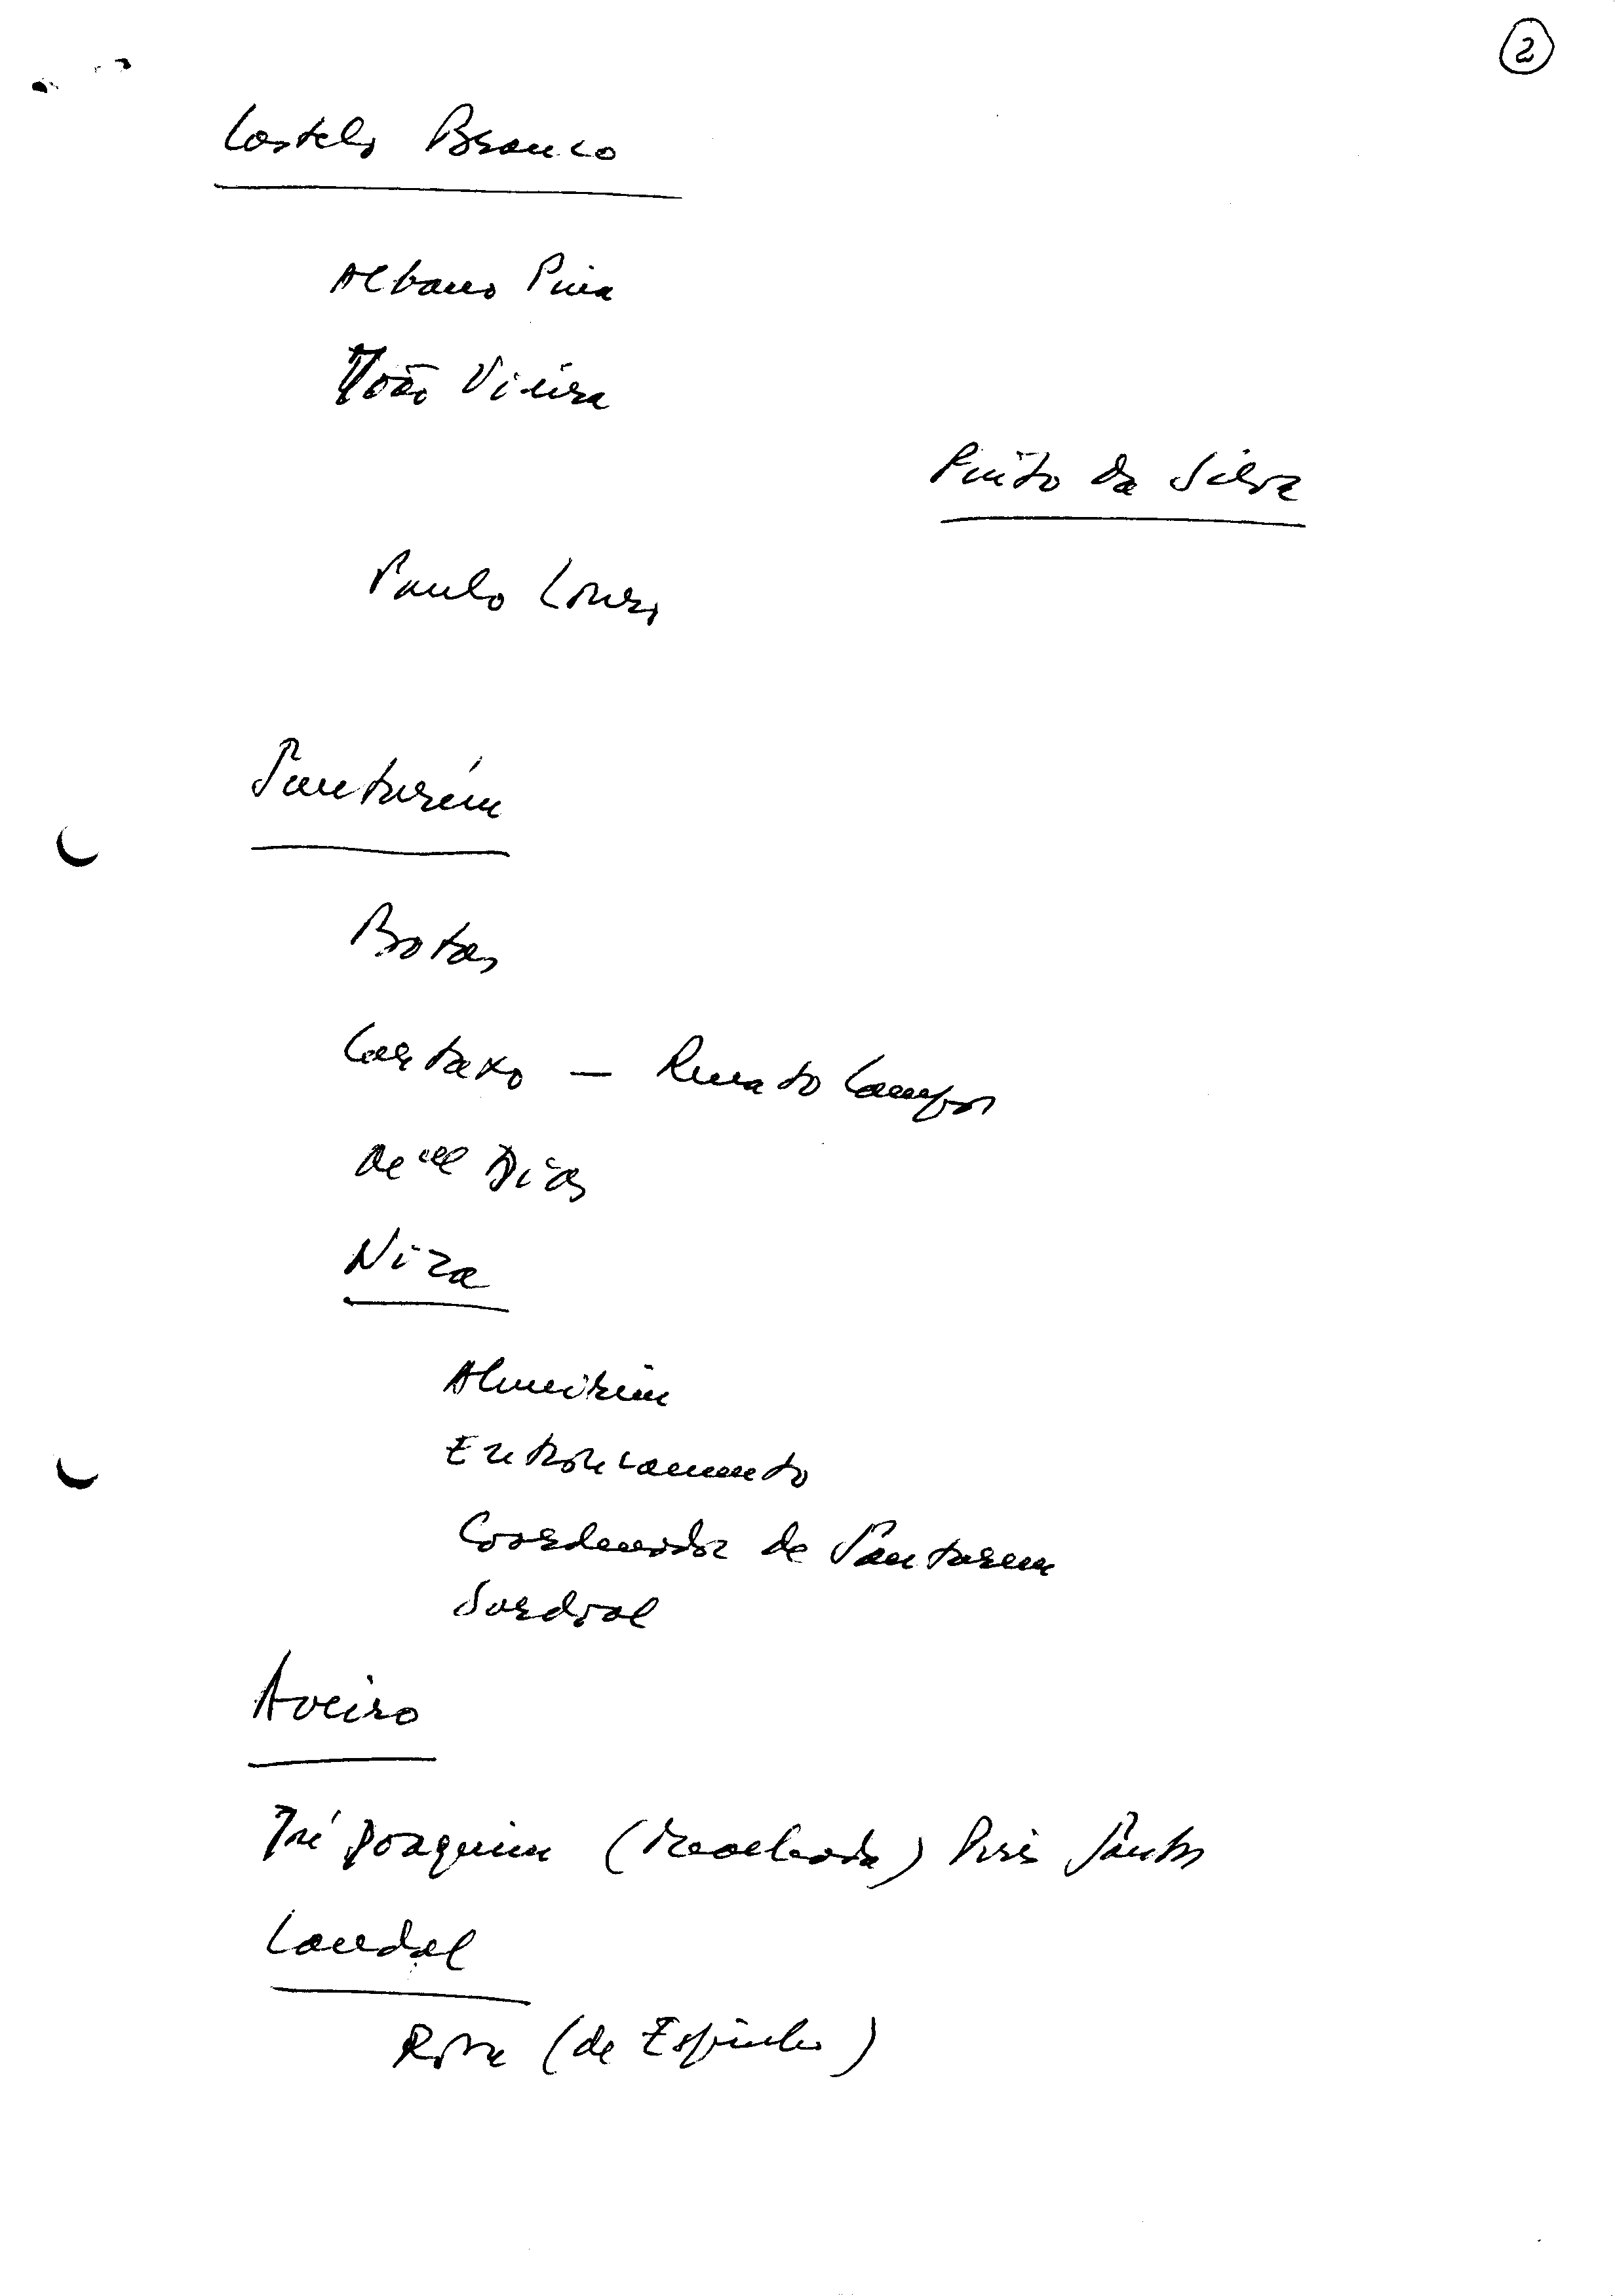 2
Castelo Branco
Albano Pina
João Vieira
Pinto da Silva
Paulo Louro
Santarém
Botas
Cartaxo — Renato Campos
Dias
Niza
Almeirim
Entroncamento
Coordenador de Santarem
Sardoal
Aveiro
Zé Joaquim (Mealhada) Pires Santos
Candal
Rosa (de Espinho)